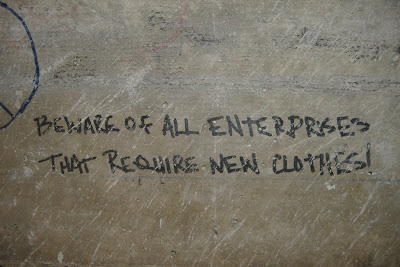 BEWARE OF ALL ENTERPRISES
THAT REQUIRE NEW CLOTHES!